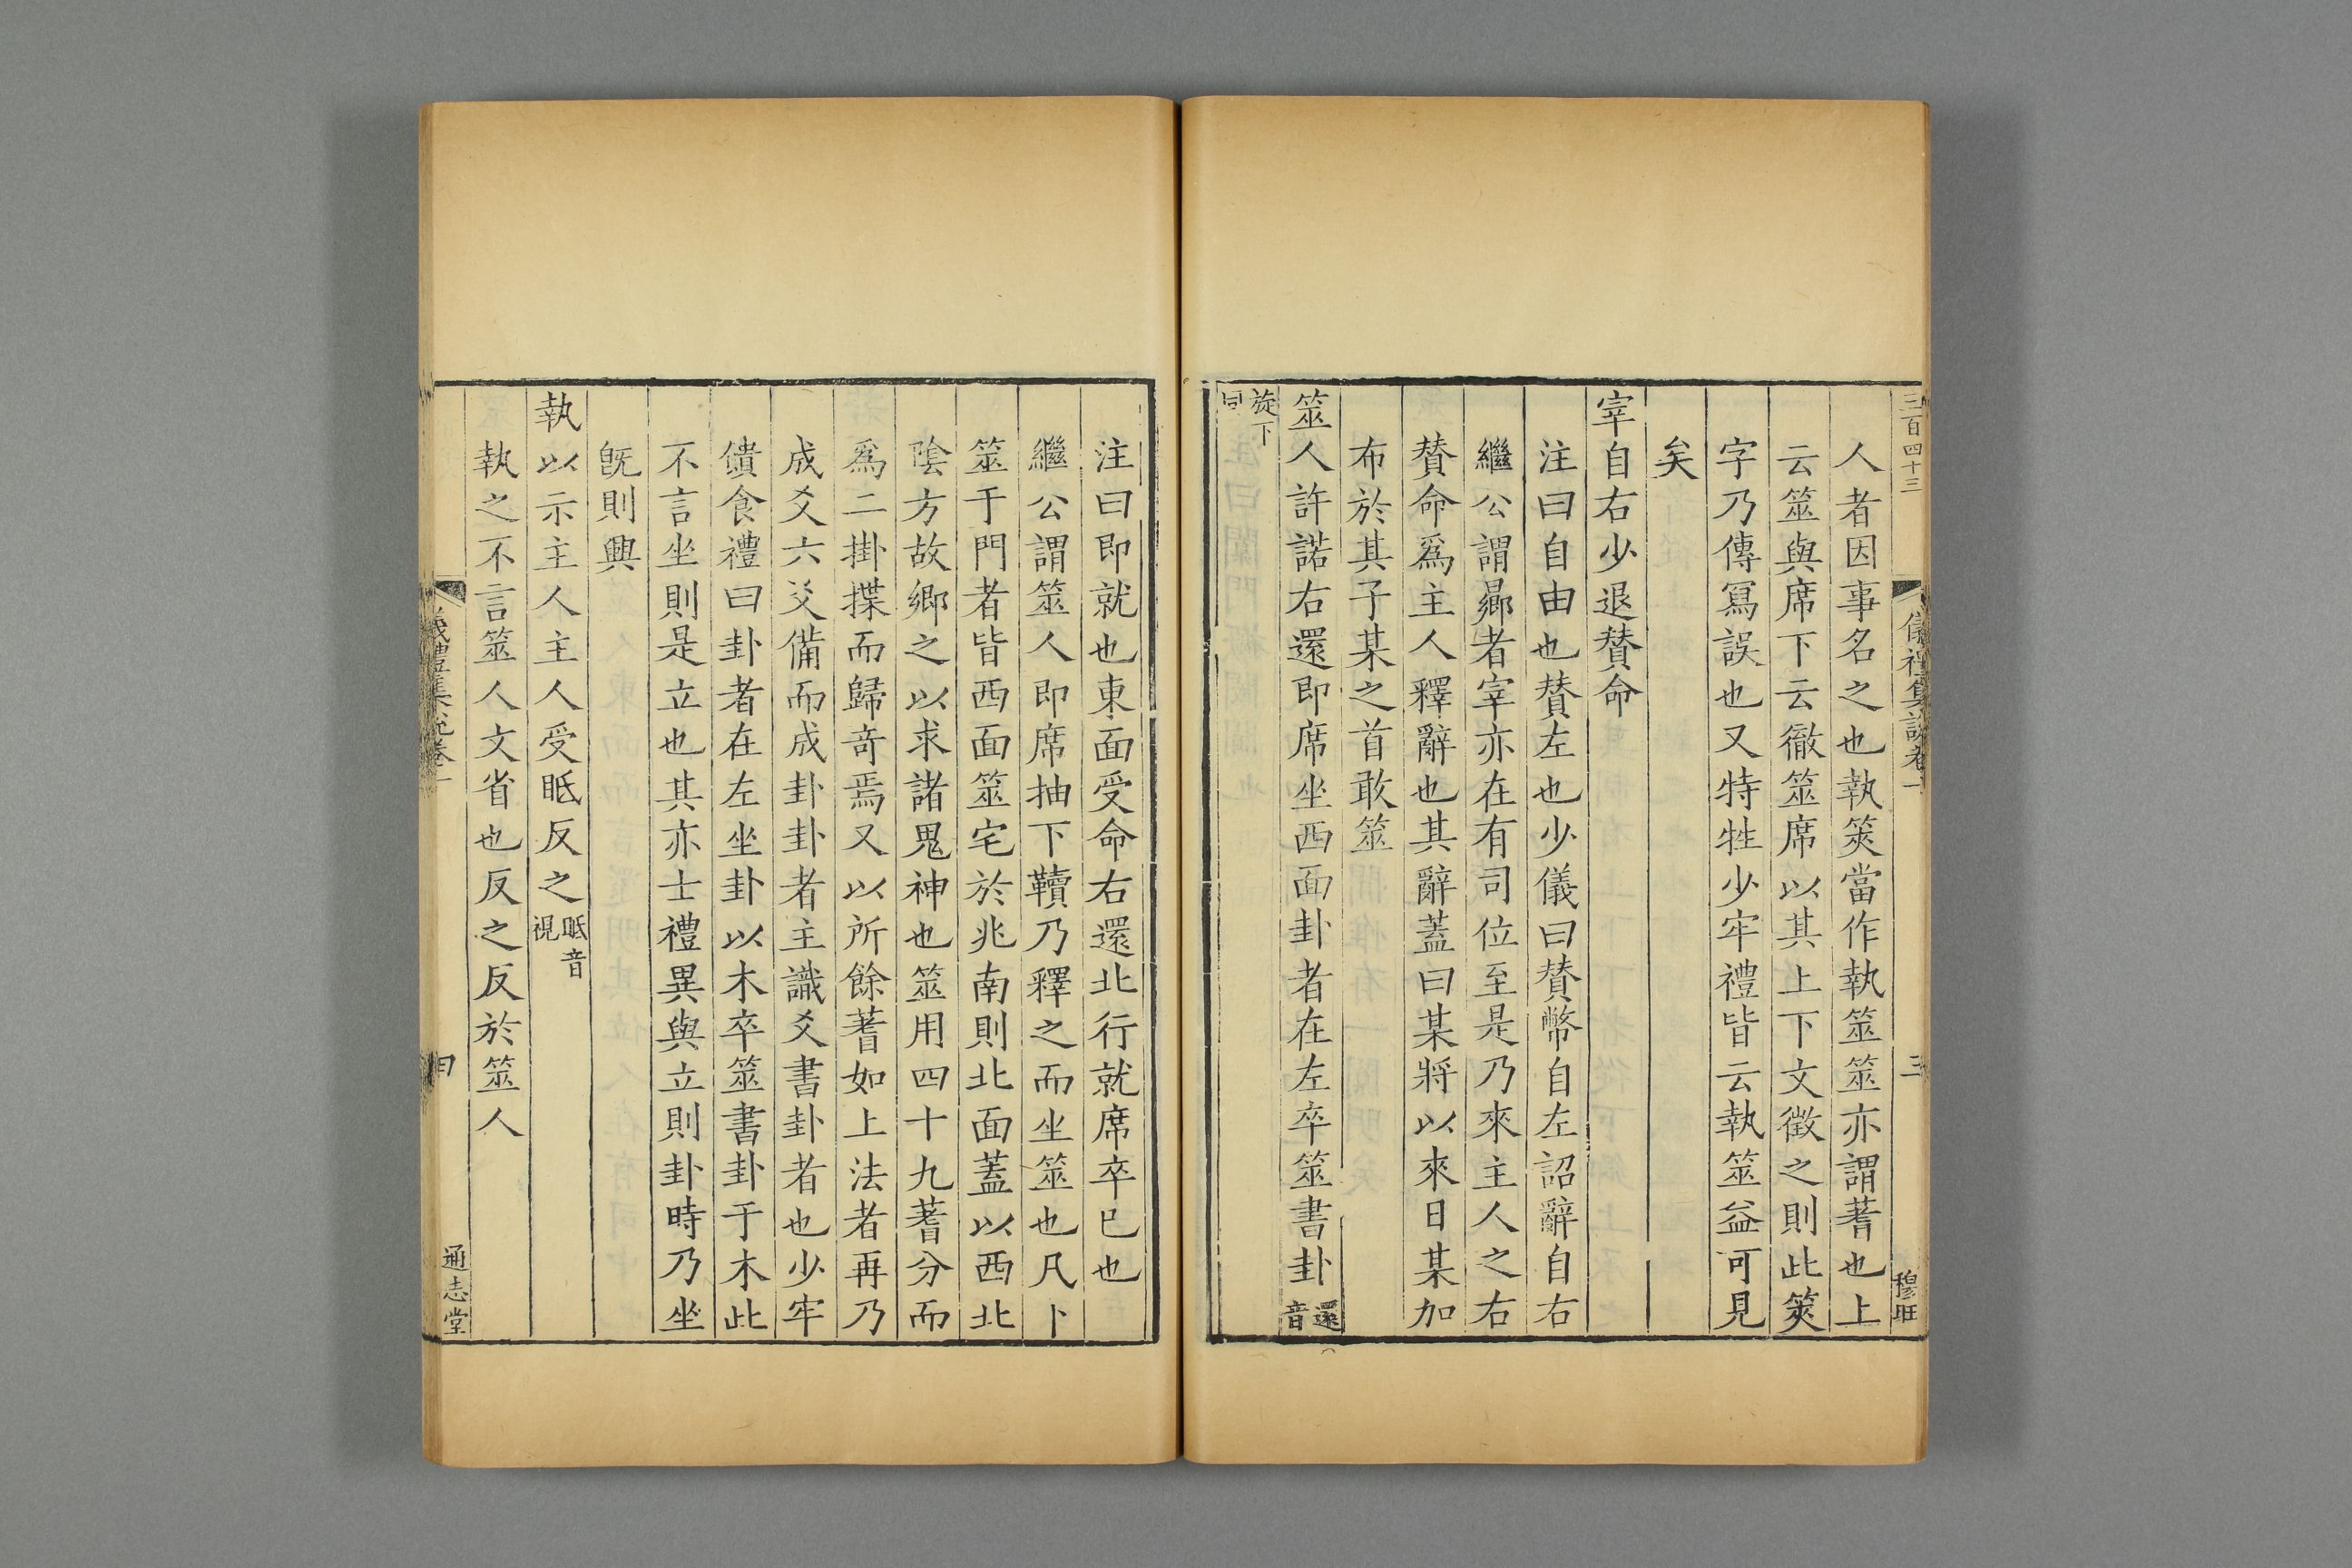 三百四十三
儀禮集說卷一
三
穆旺
人者因事名之也執筴當作執筮筮亦謂蓍也上
云筮與席下云徹筮席以其上下文徵之則此筴
字乃傳寫誤也又特牲少牢禮皆云執筮益可見
矣
宰自右少退贊命
注曰自由也贊左也少儀曰贊幣自左詔辭自右
繼公謂曏者宰亦在有司位至是乃來主人之右
贊命爲主人釋辭也其辭蓋曰某將以來日某加
布於其子某之首敢筮
筮人許諾右還即席坐西面卦者在左卒筮書卦還音
旋下同
注曰即就也東面受命右還北行就席卒已也
繼公謂筮人即席抽下韇乃釋之而坐筮也凡卜
筮于門者皆西面筮宅於兆南則北面蓋以西北
陰方故鄉之以求諸鬼神也筮用四十九蓍分而
爲二掛揲而歸奇焉又以所餘蓍如上法者再乃
成爻六爻備而成卦卦者主識爻書卦者也少牢
饋食禮曰卦者在左坐卦以木卒筮書卦于木此
不言坐則是立也其亦士禮異與立則卦時乃坐
旣則興
執以示主人主人受眡反之眡音視
執之不言筮人文省也反之反於筮人
儀禮集說卷一
通志堂